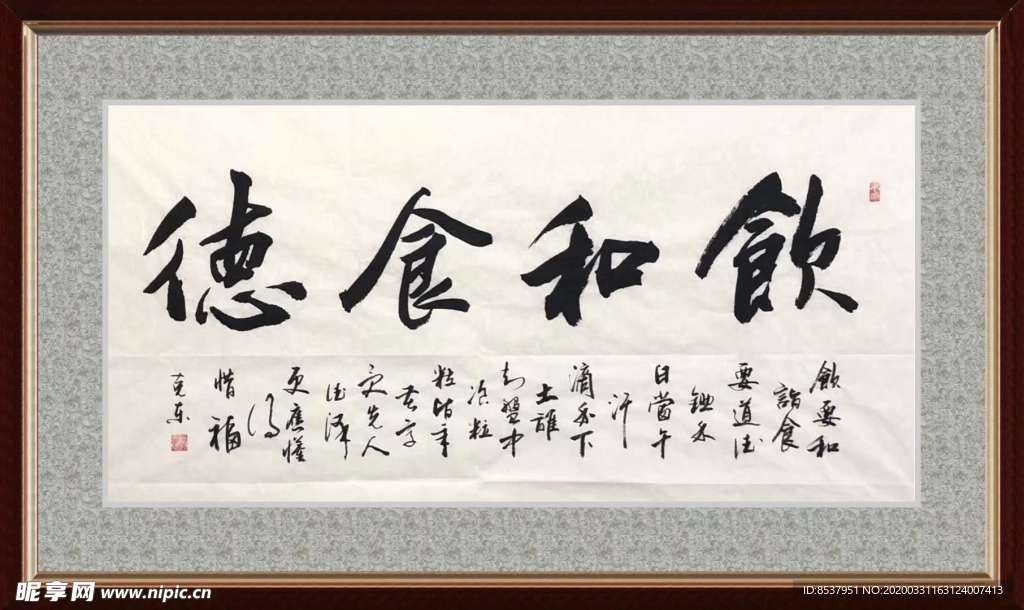 飲和食德
飲要和
諧食
要道德
鋤禾
日當午
汗
滴禾下
土誰
知盤中
飡粒
粒皆辛
苦享
受先人
德澤
更應懂
得
惜福
克東
昵享网 www.nipic.cn
ID:8537951 NO:20200331163124007413